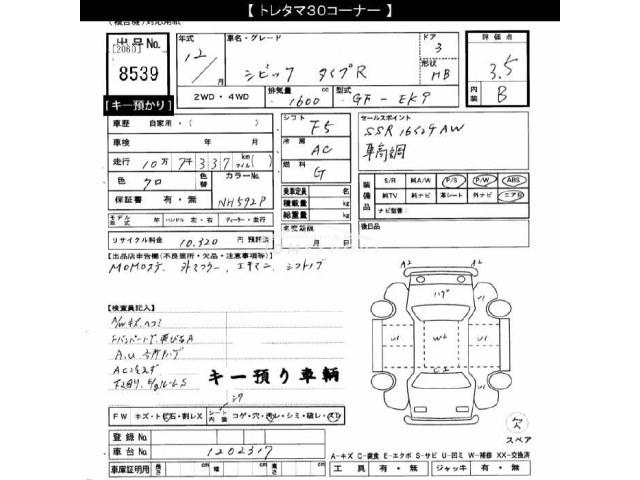 【 トレタマ30コーナー 】
(複合機)対応用紙
出品No.
[2060]
8539
【キー預かり】
年式
12/月
車名・グレード
シビック タイプR
ドア
3
形状
HB
評価点
3.5
内装
B
2WD・4WD
排気量
1600 cc
型式
GF-EK9
車歴 自家用・( )
車検 年 月
走行 10万 7千 337 km マイル ( )
色 クロ
色替
カラーNo.
NH592P
保証書 有・無
シフト F5
冷房 AC
燃料 G
乗車定員 名
積載量 kg
総重量 kg
セールスポイント
SSR 16インチAW
車高調
装備品
S/R 純A/W P/S P/W ABS
純TV 純ナビ 革シート 外ナビ エアB
ナビ型番:
モデル年式 年 ハンドル 左・右 ディーラー・並行
名変期限
月 日
後日品
リサイクル料金 10,320 円 預託済
【出品店申告欄(不良箇所・欠品・注意事項等)】
MOMOステ、外マフラー、エキマニ、シフトノブ
【検査員記入】
A/Wキズ、ヘコミ
ACコゲ
キー預り車輌
FW キズ・ト石・割レX
シート内装 コゲ・穴・汚レ・シミ・破レ・スレ
シワ
登録No.
車台No. 1202317
車庫証明用 長さ cm 幅 cm 高さ cm
A2
A2
ハゲ
U1
U1
U1
W2
スペア
A-キズ C-腐食 E-エクボ S-サビ U-凹ミ W-補修 XX-交換済
工具 有・無 ジャッキ 有・無